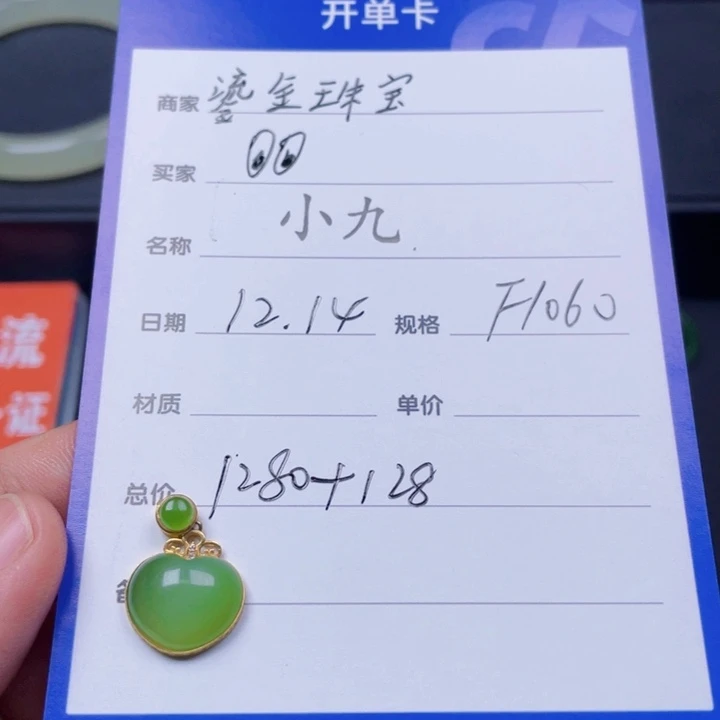 开单卡
商家 鎏金珠宝
买家
名称 小九
日期 12.14 规格 F1060
材质 单价
总价 1280+128
流
证